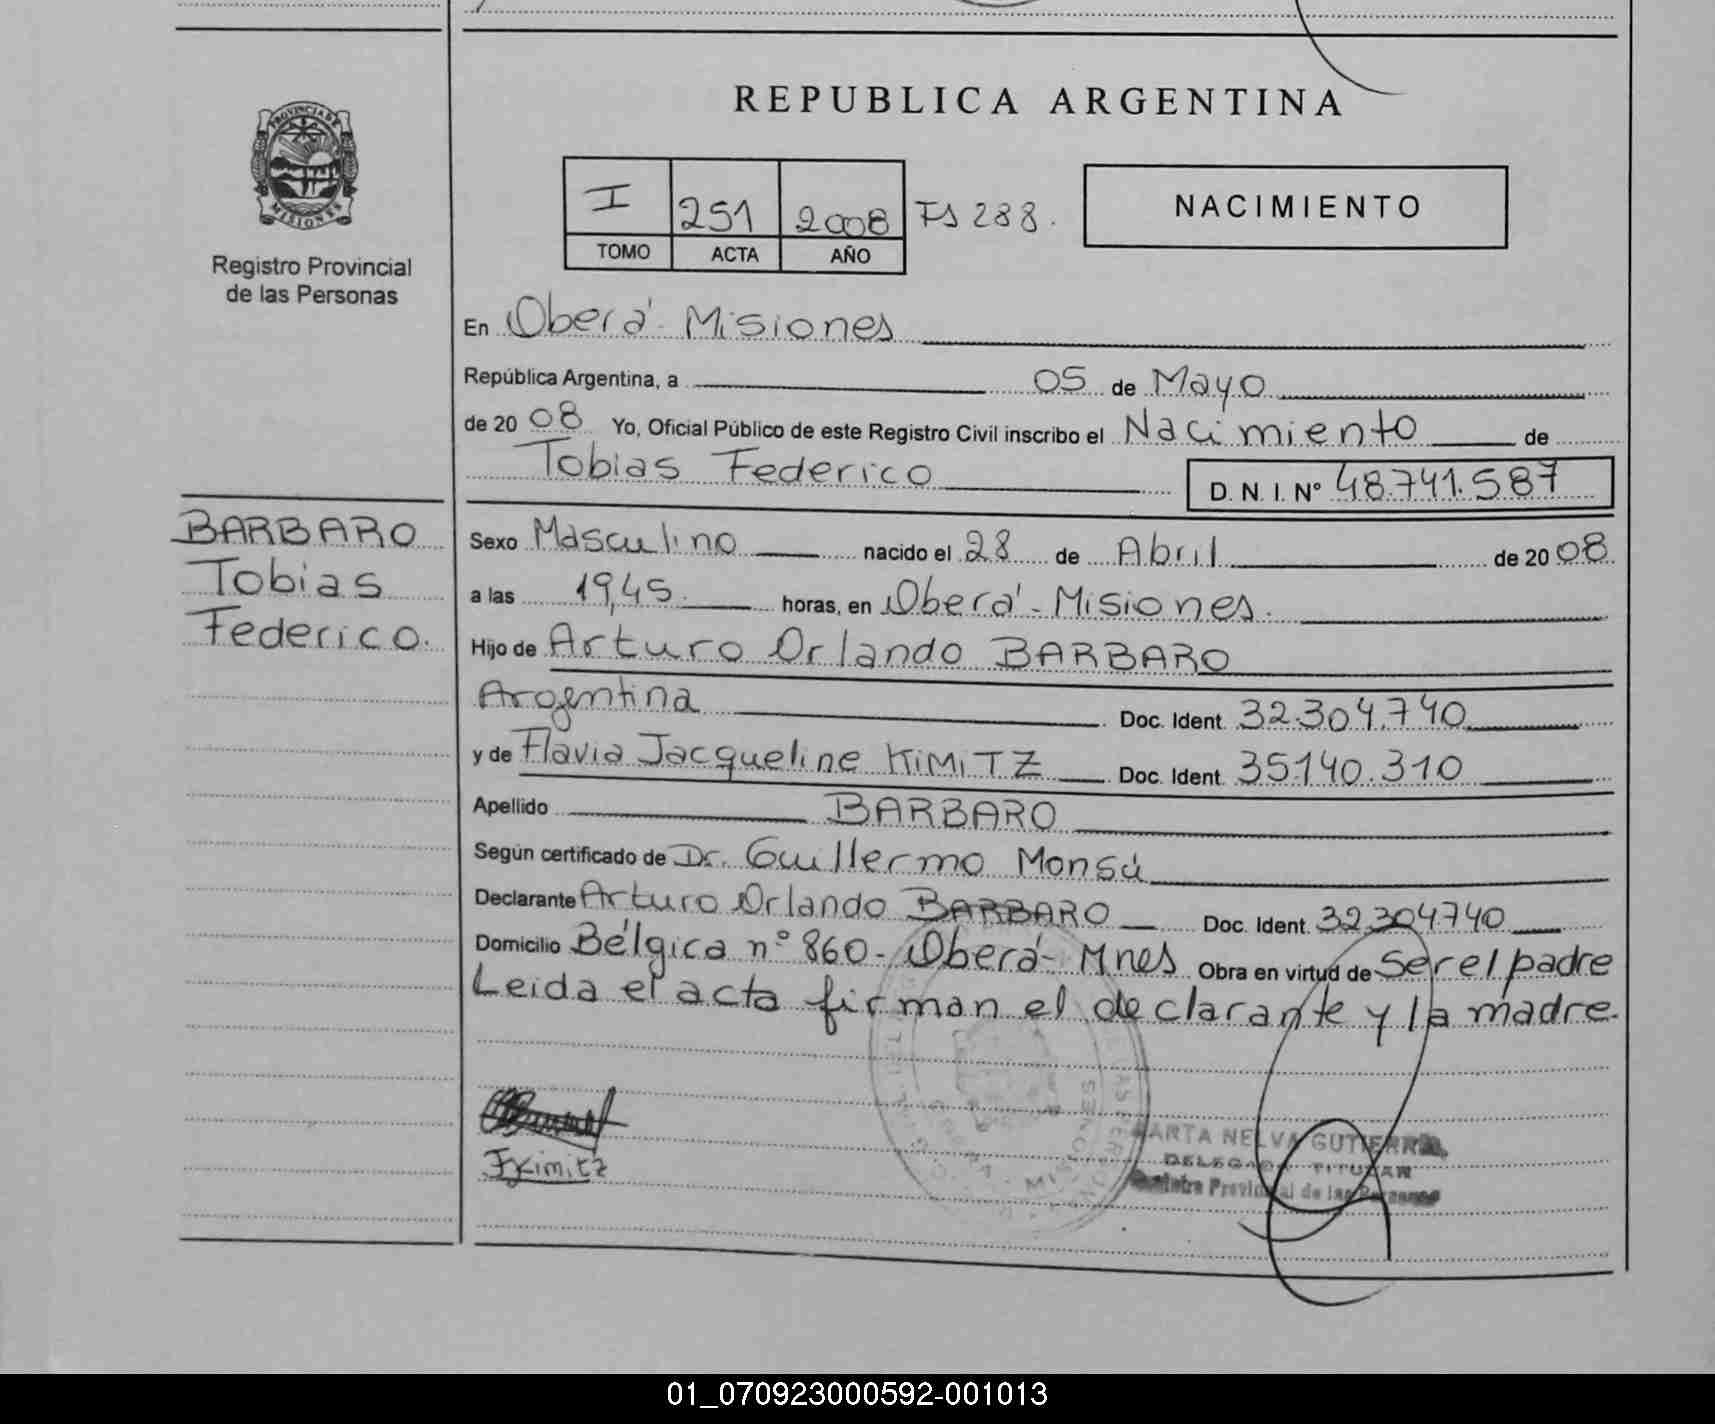 REPUBLICA ARGENTINA
PROVINCIA DE
MISIONES
Registro Provincial
de las Personas
I 251 2008 FS 288.
TOMO ACTA AÑO
NACIMIENTO
En Oberá - Misiones
República Argentina, a 05 de Mayo
de 2008 Yo, Oficial Público de este Registro Civil inscribo el Nacimiento de
Tobias Federico D. N. I. Nº 48.741.587
BARBARO
Tobias
Federico.
Sexo Masculino nacido el 28 de Abril de 2008
a las 19,45 horas, en Oberá - Misiones.
Hijo de Arturo Orlando BARBARO
Argentina Doc. Ident. 32.304.740
y de Flavia Jacqueline KiMiTZ Doc. Ident. 35.140.310
Apellido BARBARO
Según certificado de Dr. Guillermo Monsú
Declarante Arturo Orlando BARBARO Doc. Ident. 32304740
Domicilio Bélgica nº 860 - Oberá - Mnes Obra en virtud de Ser el padre
Leida el acta firman el declarante y la madre.
JKimitz
MARTA NELVA GUTIERREZ
DELEGADA TITULAR
Registro Provincial de las Personas
01_070923000592-001013